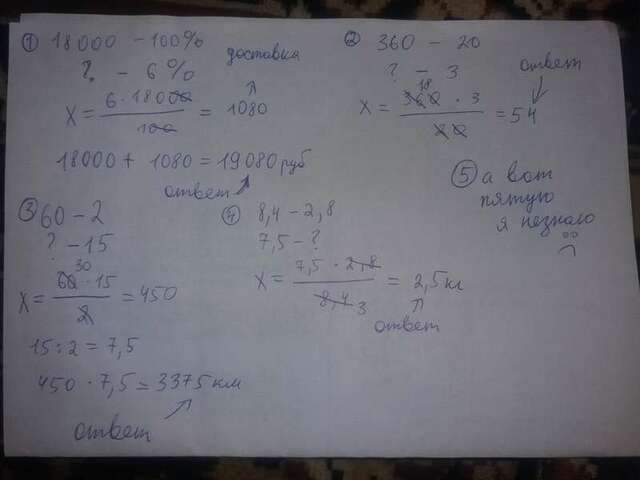 ① 18000 - 100%
? - 6%
доставка
x = 6·18000 / 100 = 1080
18000 + 1080 = 19080 руб
ответ
② 360 - 20
? - 3
ответ
18
x = 360 · 3 / 20 = 54
③ 60 - 2
? - 15
30
x = 60 · 15 / 2 = 450
15 : 2 = 7,5
450 · 7,5 = 3375 км
ответ
④ 8,4 - 2,8
7,5 - ?
x = 7,5 · 2,8 / 8,4 3 = 2,5 кг
ответ
⑤ а вот
пятую
я незнаю